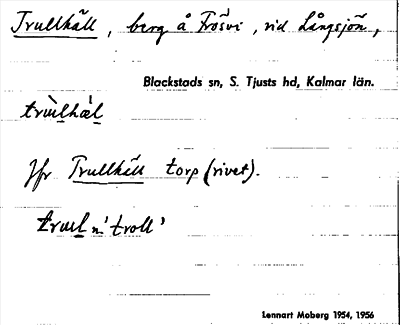 Trullhäll, berg å Frösvi, vid Långsjön,
Blackstads sn, S. Tjusts hd, Kalmar län.
Jfr Trullhäll torp (rivet).
'troll'
Lennart Moberg 1954, 1956